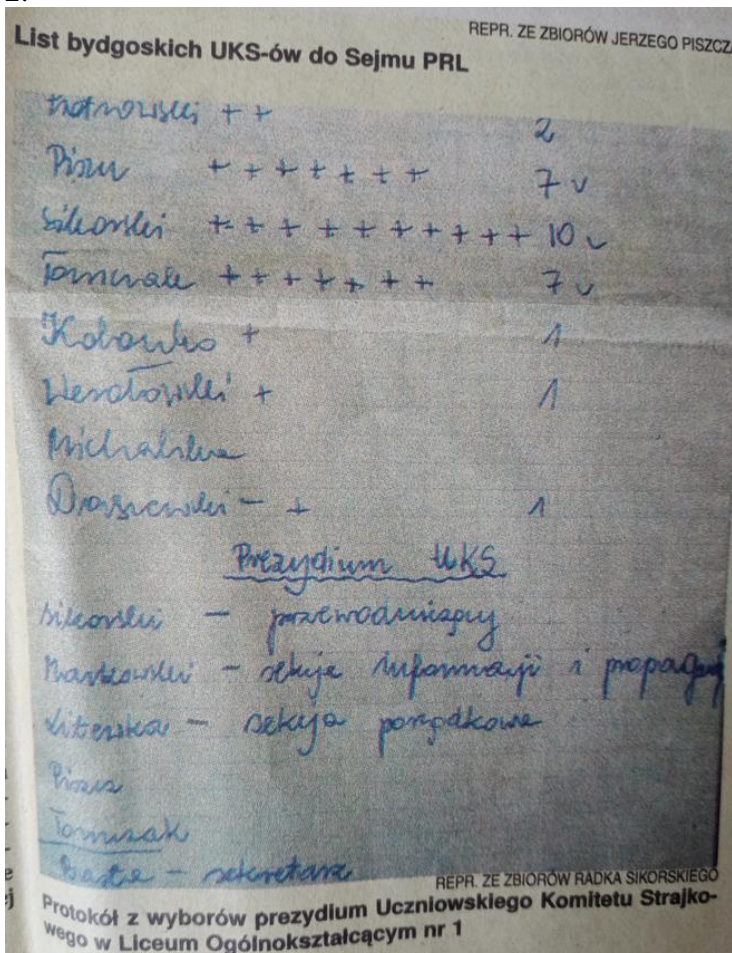 2.
REPR. ZE ZBIORÓW JERZEGO PISZCZ
List bydgoskich UKS-ów do Sejmu PRL
++ 2
Piszcz +++++++ 7 v
Sikorski ++++++++++ 10 v
Tomczak +++++++ 7 v
+ 1
+ 1
Michalska
Draszewski - + 1
Prezydium UKS
Sikorski - przewodniczący
- sekcja informacji i propagandy
Literska - sekcja porządkowa
Piszcz
Tomczak
- sekretarz
REPR. ZE ZBIORÓW RADKA SIKORSKIEGO
Protokół z wyborów prezydium Uczniowskiego Komitetu Strajko-
wego w Liceum Ogólnokształcącym nr 1